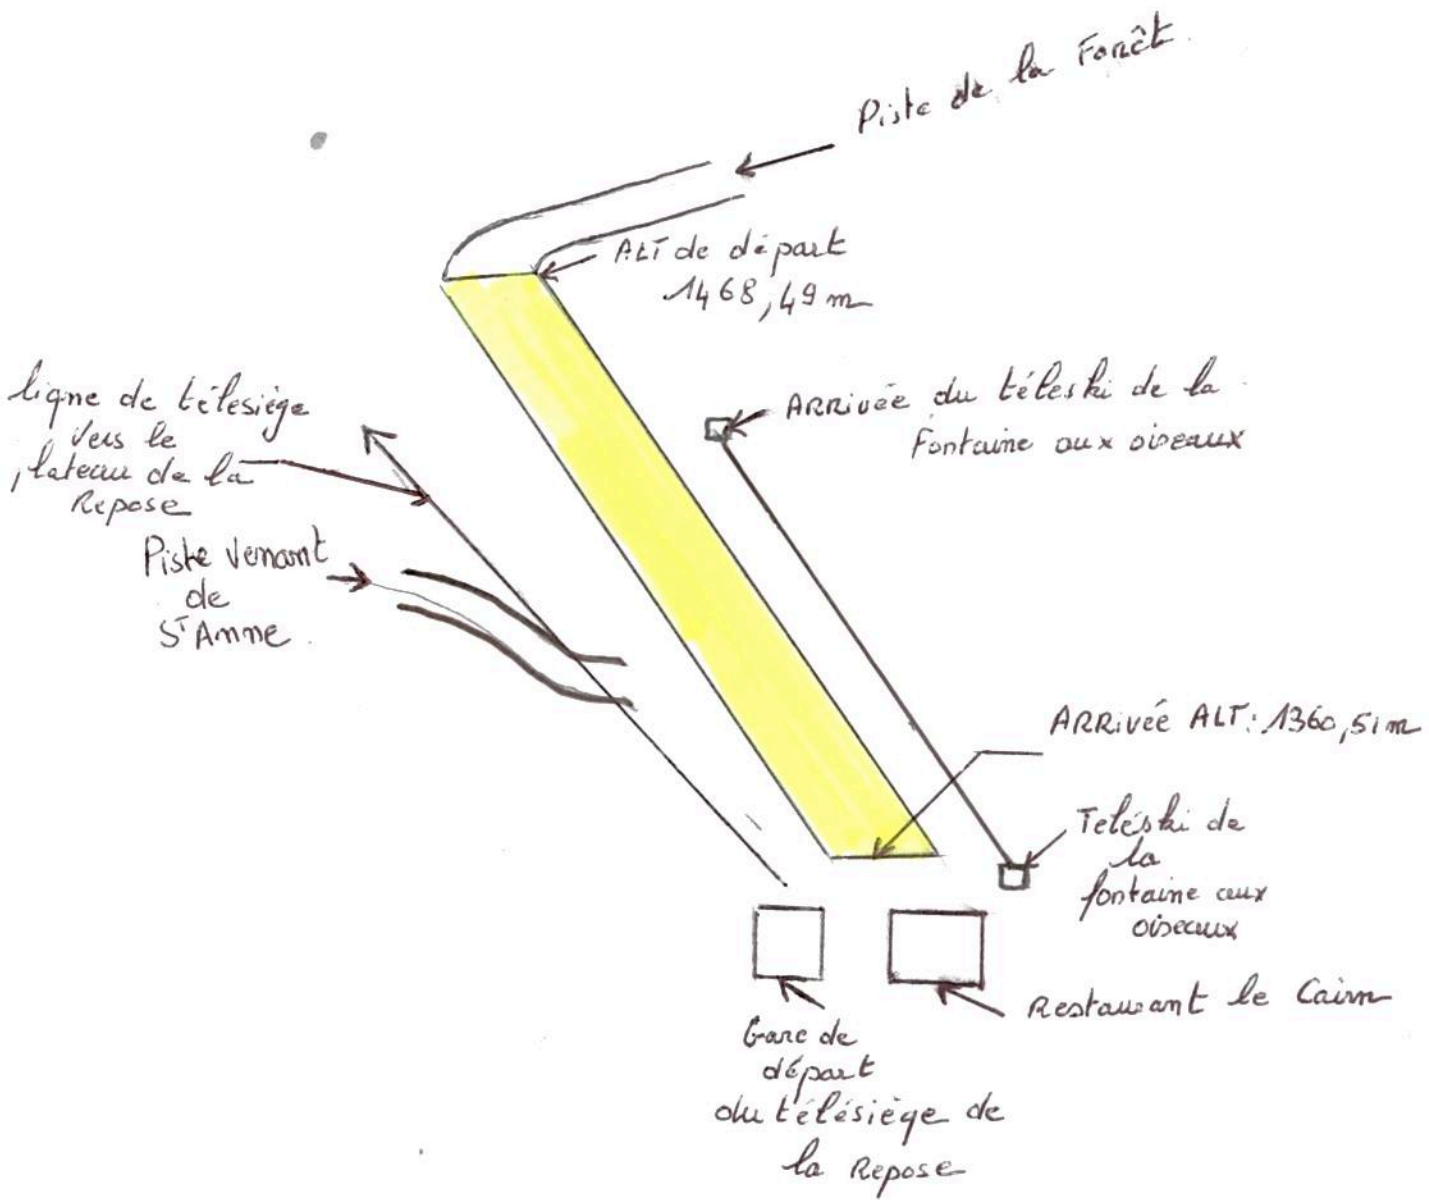 Piste de la Forêt
ALT de départ
1468,49 m
ligne de télésiège
vers le
plateau de la
Repose
ARRivée du téleski de la
Fontaine aux oiseaux
Piste venant
de
St Anne
ARRivée ALT: 1360,51m
Teléski de
la
fontaine aux
oiseaux
Restaurant le Cairn
Gare de
départ
du télésiège de
la Repose